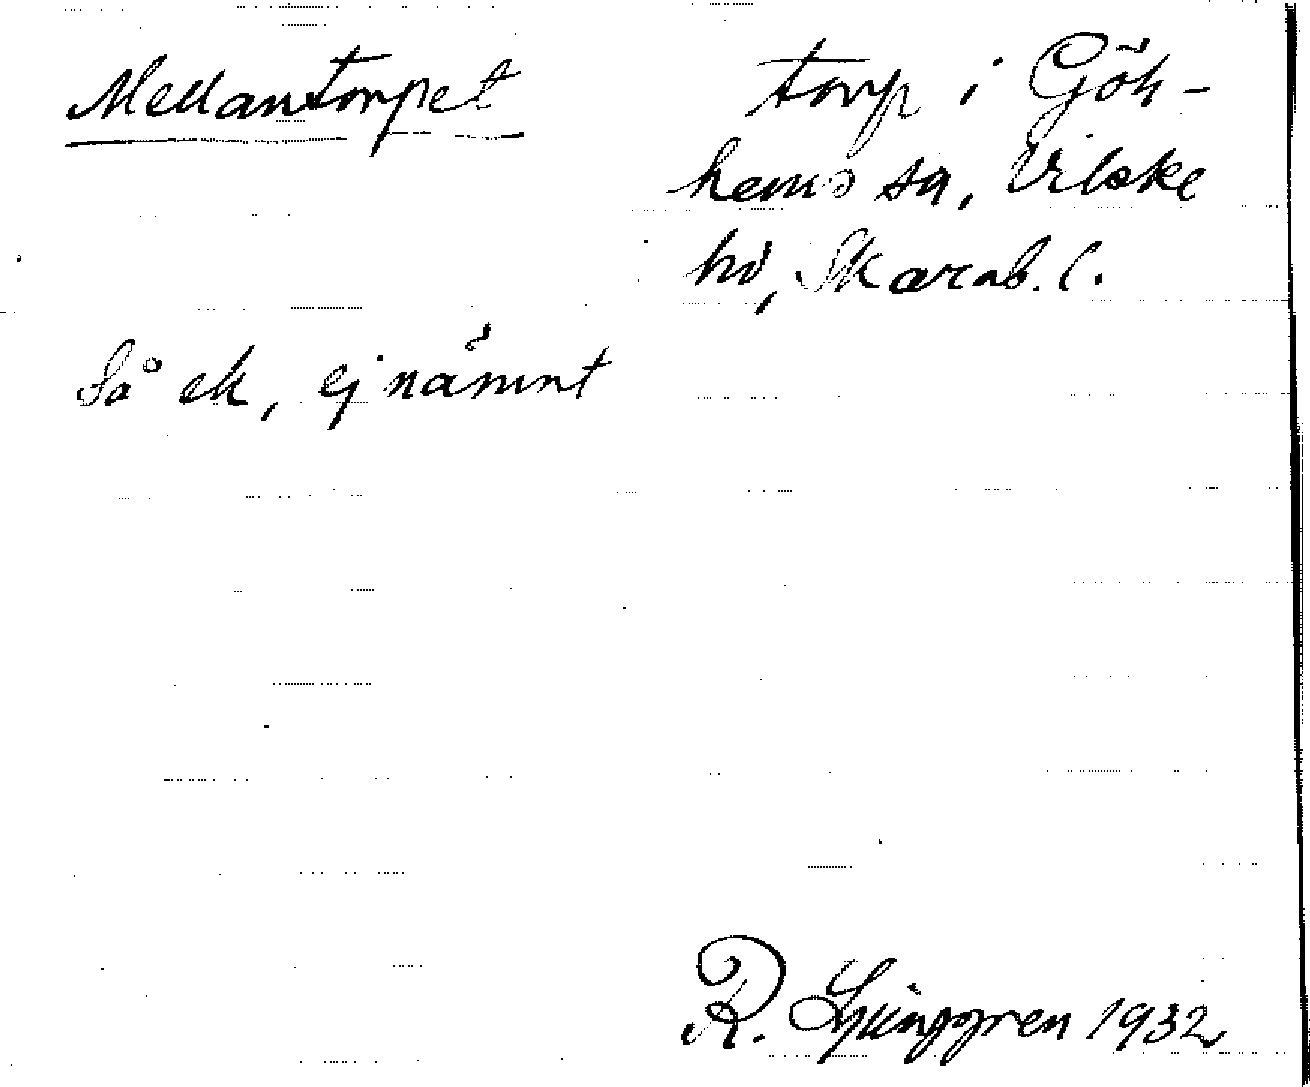 Mellantorpet
torp i Göt-
hems sn, Vilske
hd, Skarab. l.
Så ek, ej nämnt
R. Ljunggren 1932